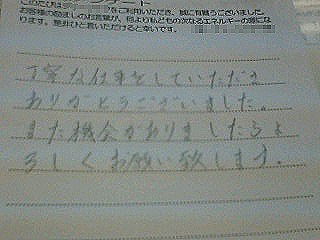 ンケート
このたびは をご利用いただき、誠に有難うございました。
お客様の励ましのお言葉が、何より私どもの次なるエネルギーの源にな
ります。是非ひと言いただけると幸いです。
丁寧な仕事をしていただき
ありがとうございました。
また機会がありましたらよ
ろしくお願い致します。